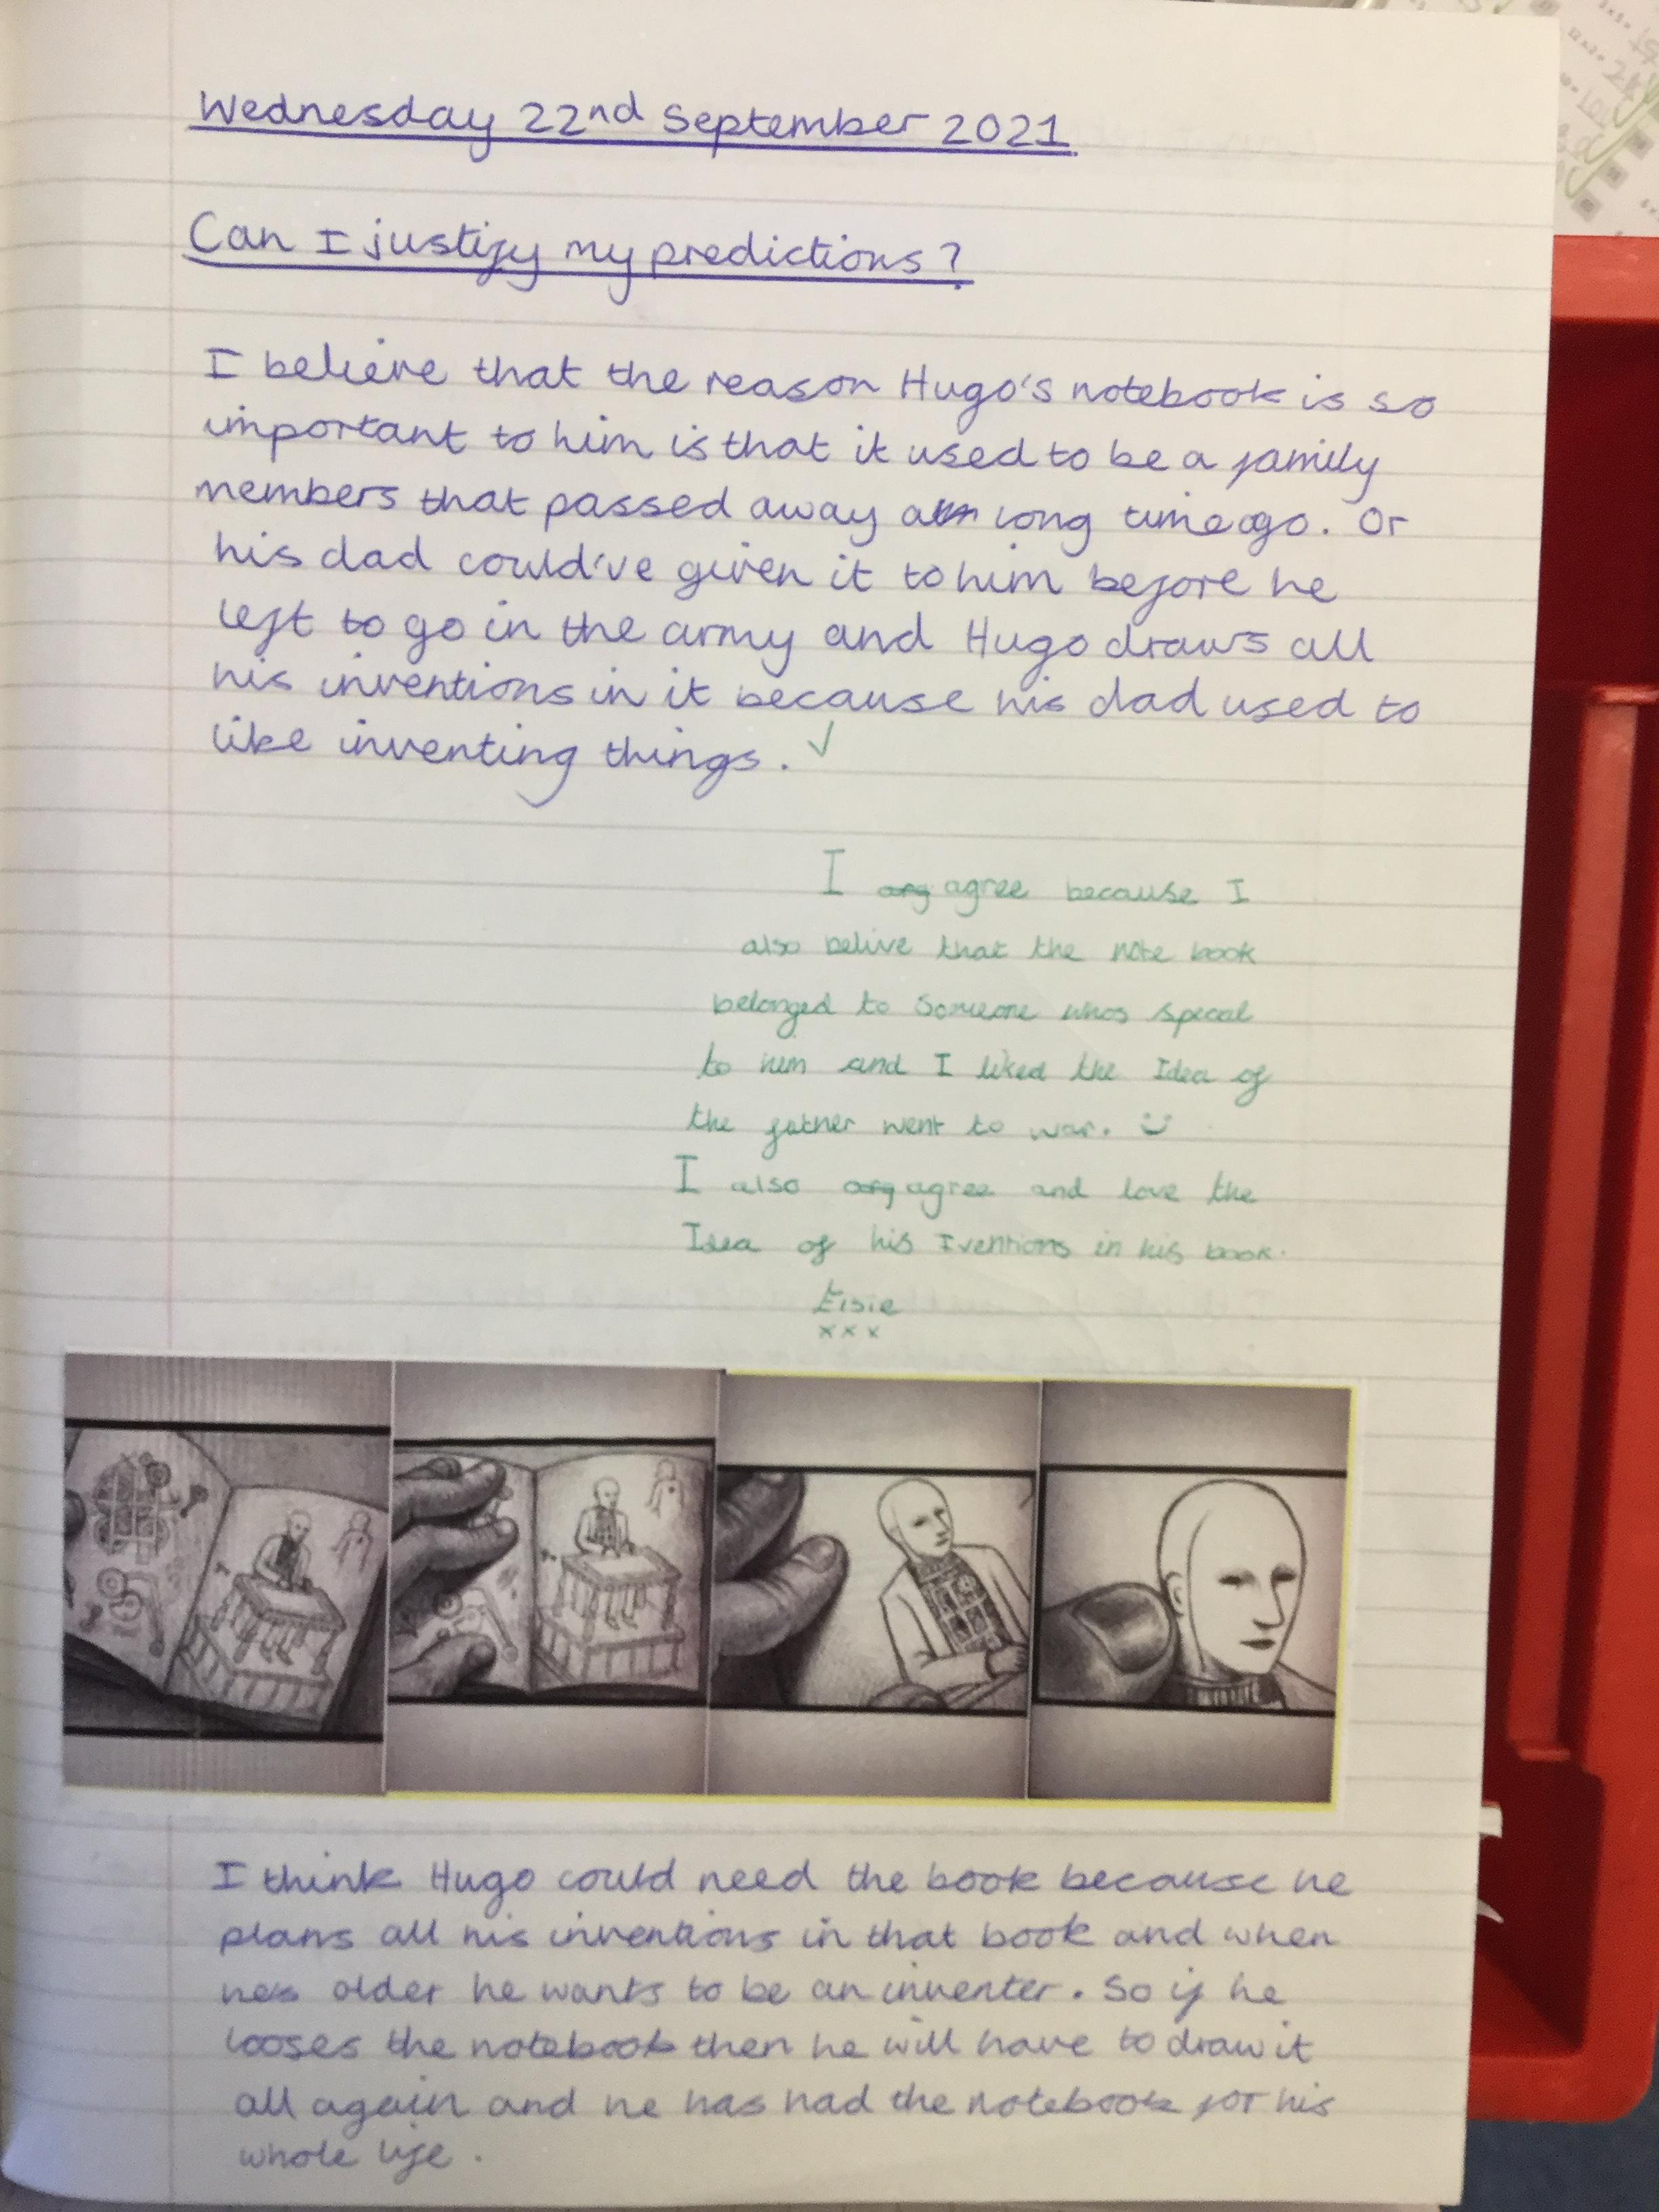 Wednesday 22nd September 2021
Can I justify my predictions?
I believe that the reason Hugo's notebook is so
important to him is that it used to be a family
members that passed away a long time ago. Or
his dad could've given it to him before he
left to go in the army and Hugo draws all
his inventions in it because his dad used to
like inventing things.
I agree because I
also belive that the note book
belonged to someone whos special
to him and I liked the Idea of
the father went to war.
I also agree and love the
Idea of his Iventions in his book.
Elsie
xxx
I think Hugo could need the book because he
plans all his inventions in that book and when
hes older he wants to be an inventer. So if he
looses the notebook then he will have to draw it
all again and he has had the notebook for his
whole life.